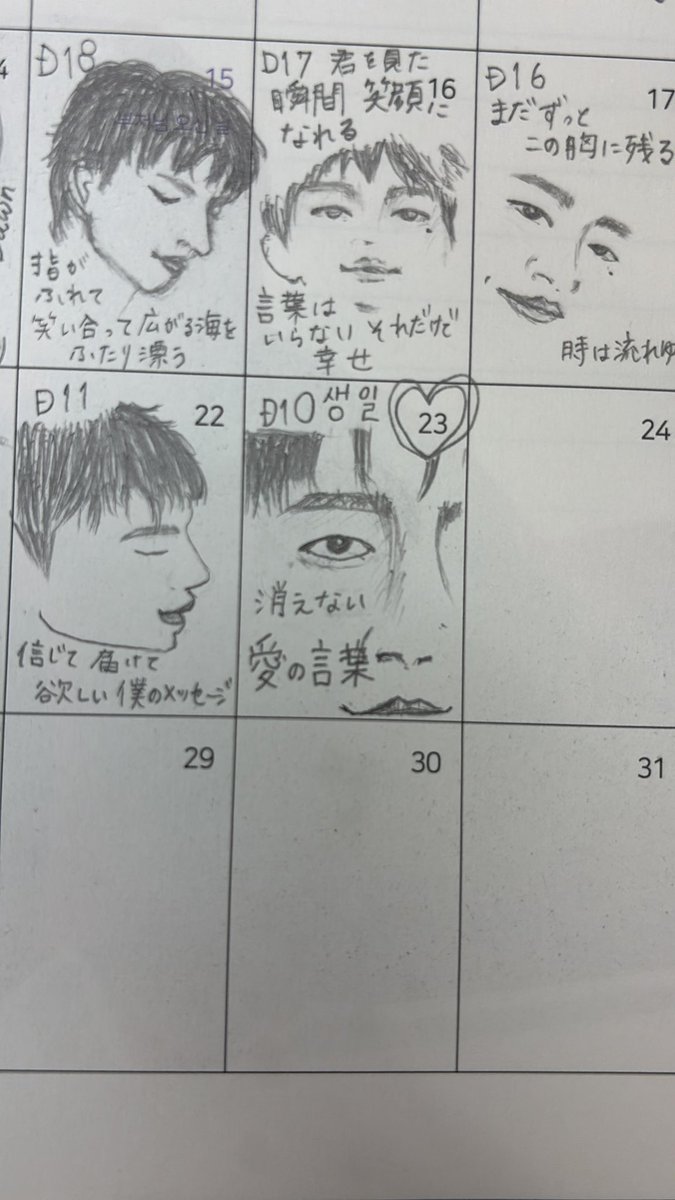 D18
15
부처님 오신 날
指が
ふれて
笑い合って広がる海を
ふたり漂う
D17 君を見た
瞬間 笑顔に
16
なれる
言葉は
いらない それだけで
幸せ
D16
17
まだずっと
この胸に残る
時は流れゆ
D11
22
信じて 届けて
欲しい 僕のメッセージ
D10 생일
23
消えない
愛の言葉
24
29
30
31